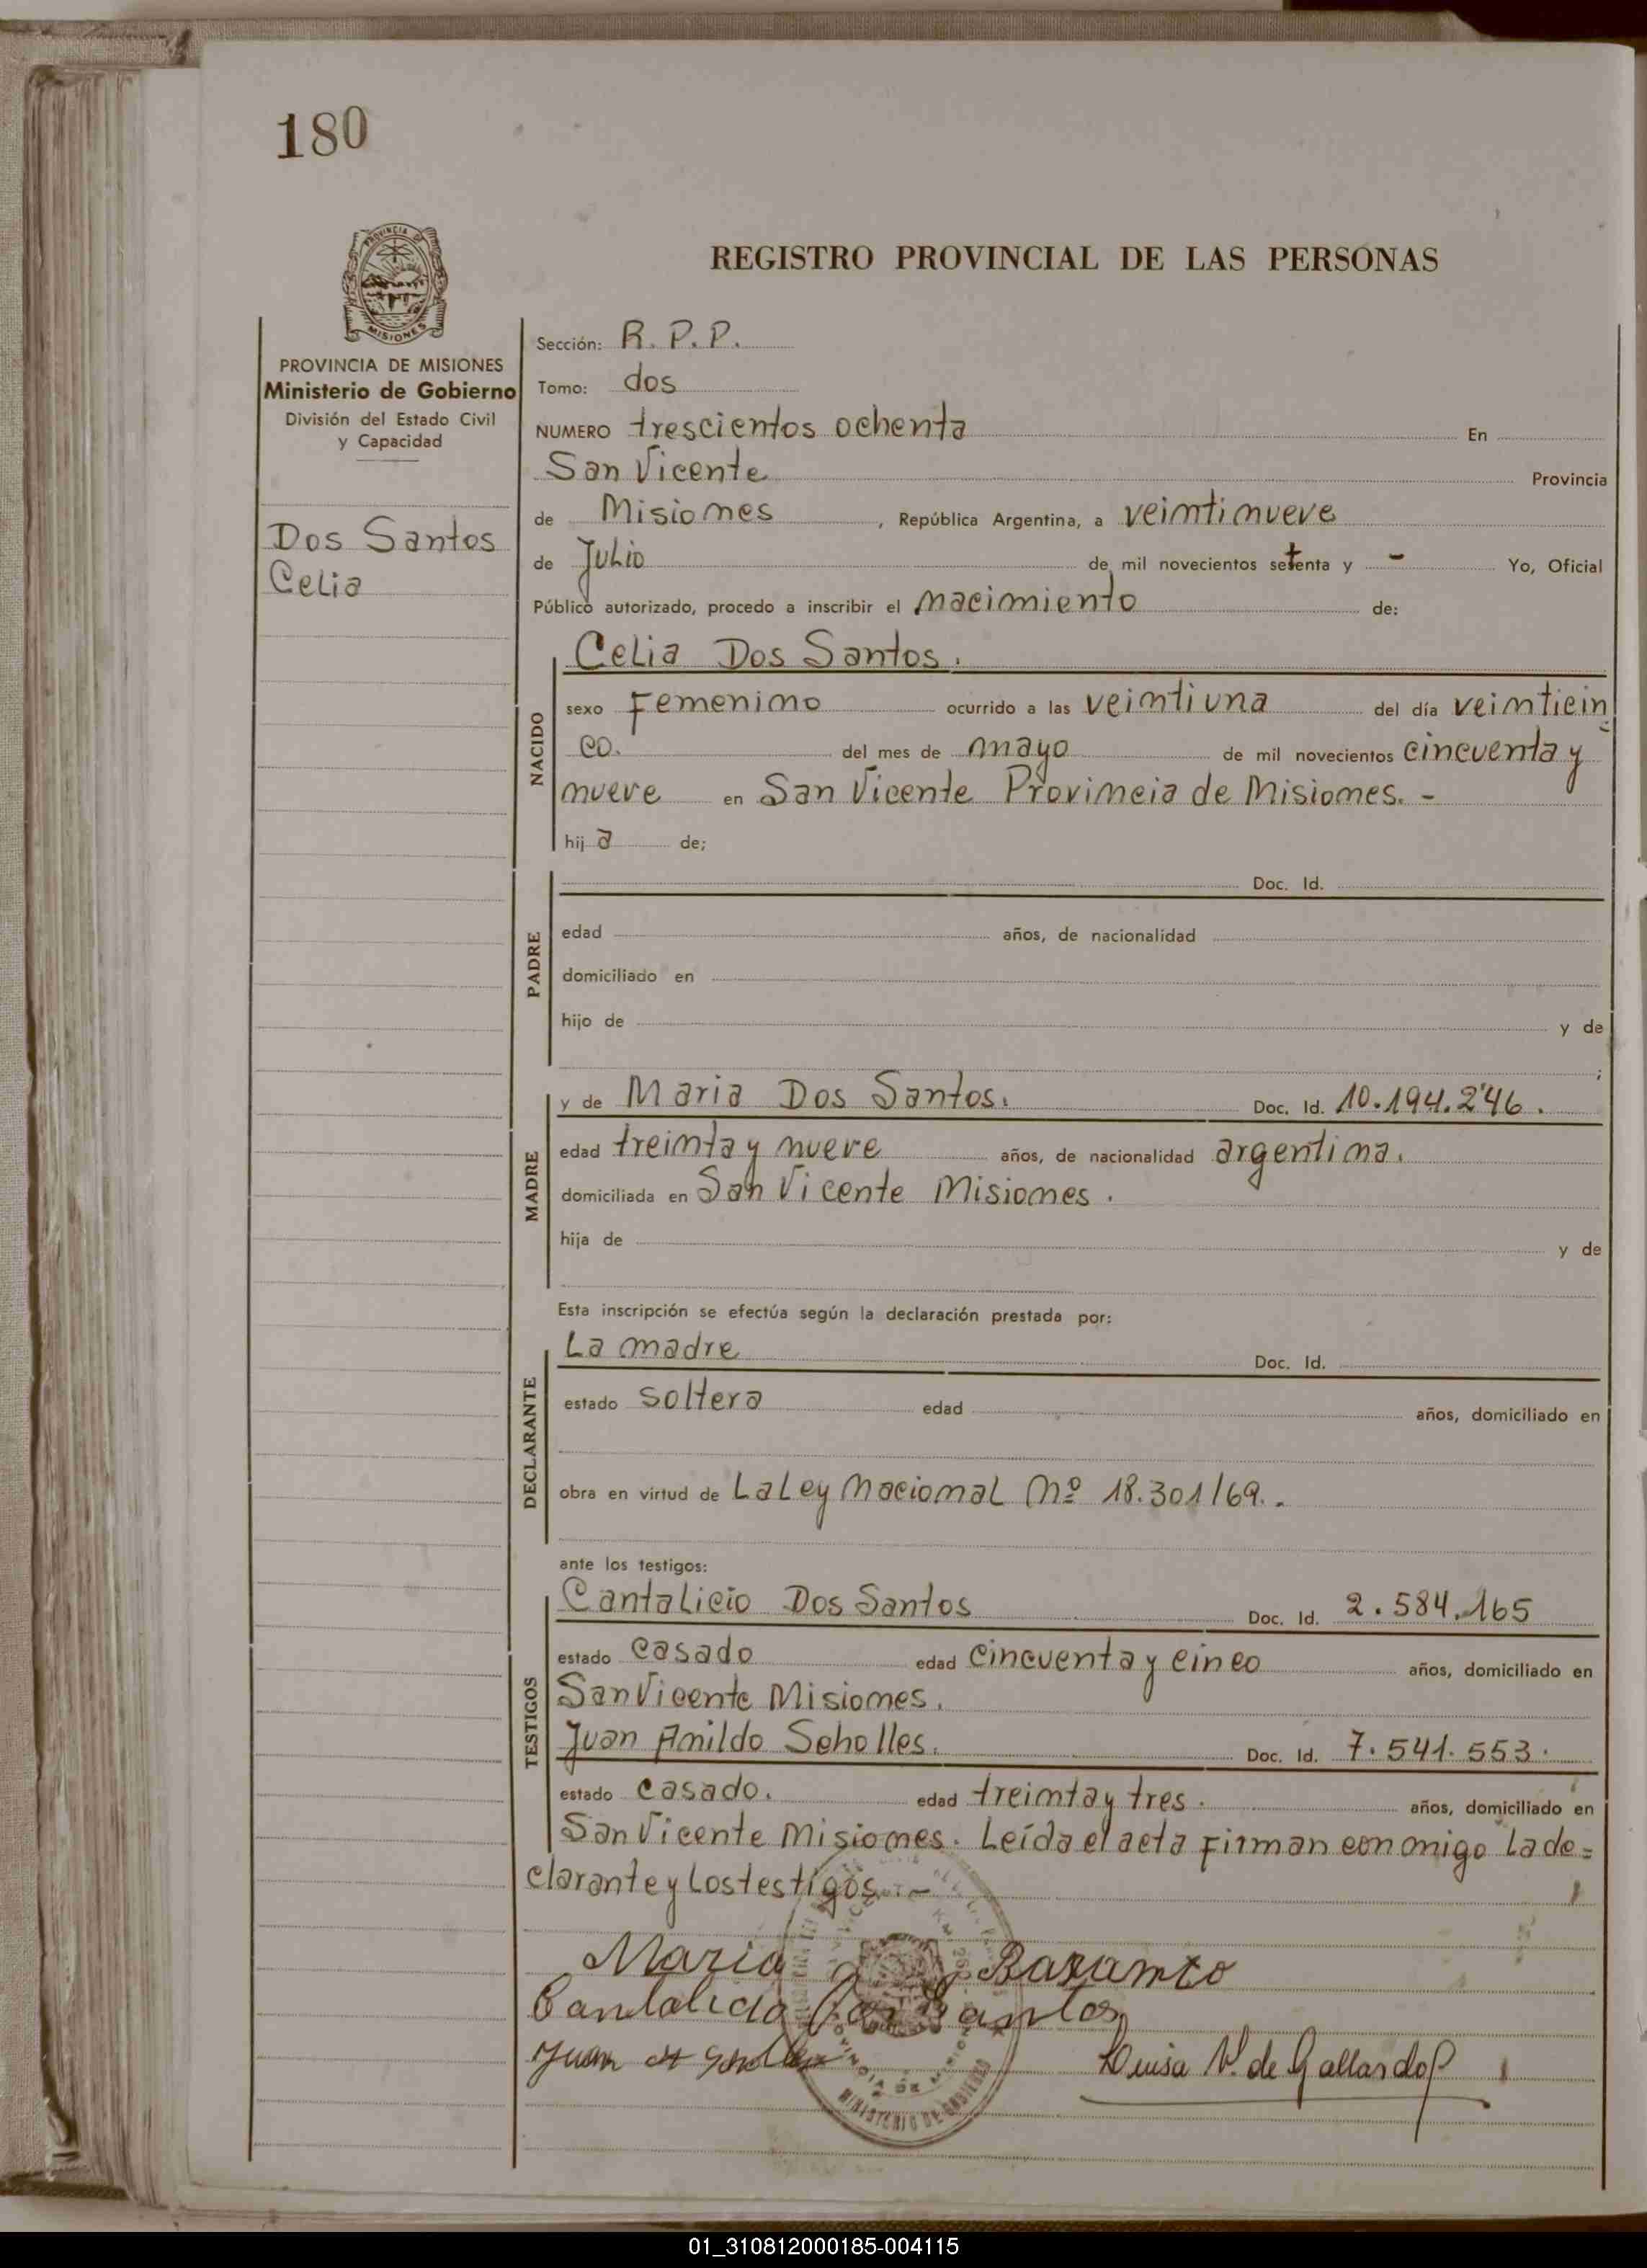 180
PROVINCIA DE
MISIONES
PROVINCIA DE MISIONES
Ministerio de Gobierno
División del Estado Civil
y Capacidad
Dos Santos
Celia
REGISTRO PROVINCIAL DE LAS PERSONAS
Sección: R. P. P.
Tomo: dos
NUMERO trescientos ochenta En
San Vicente Provincia
de Misiones, República Argentina, a veintinueve
de Julio de mil novecientos setenta y - Yo, Oficial
Público autorizado, procedo a inscribir el nacimiento de:
Celia Dos Santos.
NACIDO
sexo Femenino ocurrido a las veintiuna del día veinticin=
co. del mes de mayo de mil novecientos cincuenta y
nueve en San Vicente Provincia de Misiones. -
hija de;
PADRE
Doc. Id.
edad años, de nacionalidad
domiciliado en
hijo de y de
;
MADRE
y de Maria Dos Santos. Doc. Id. 10.194.246.
edad treinta y nueve años, de nacionalidad argentina.
domiciliada en San Vicente Misiones.
hija de y de
Esta inscripción se efectúa según la declaración prestada por:
DECLARANTE
La madre Doc. Id.
estado soltera edad años, domiciliado en
obra en virtud de La Ley Nacional Nº 18.301/69. .
ante los testigos:
TESTIGOS
Cantalicio Dos Santos Doc. Id. 2.584.165
estado casado edad cincuenta y cinco años, domiciliado en
San Vicente Misiones.
Juan Anildo Scholles. Doc. Id. 7.541.553.
estado casado. edad treinta y tres. años, domiciliado en
San Vicente Misiones. Leída el acta firman conmigo la de=
clarante y los testigos. -
Maria
Cantalicio Dos Santos
Juan A Scholles Luisa V. de Gallardo
MINISTERIO DE GOBIERNO
01_310812000185-004115